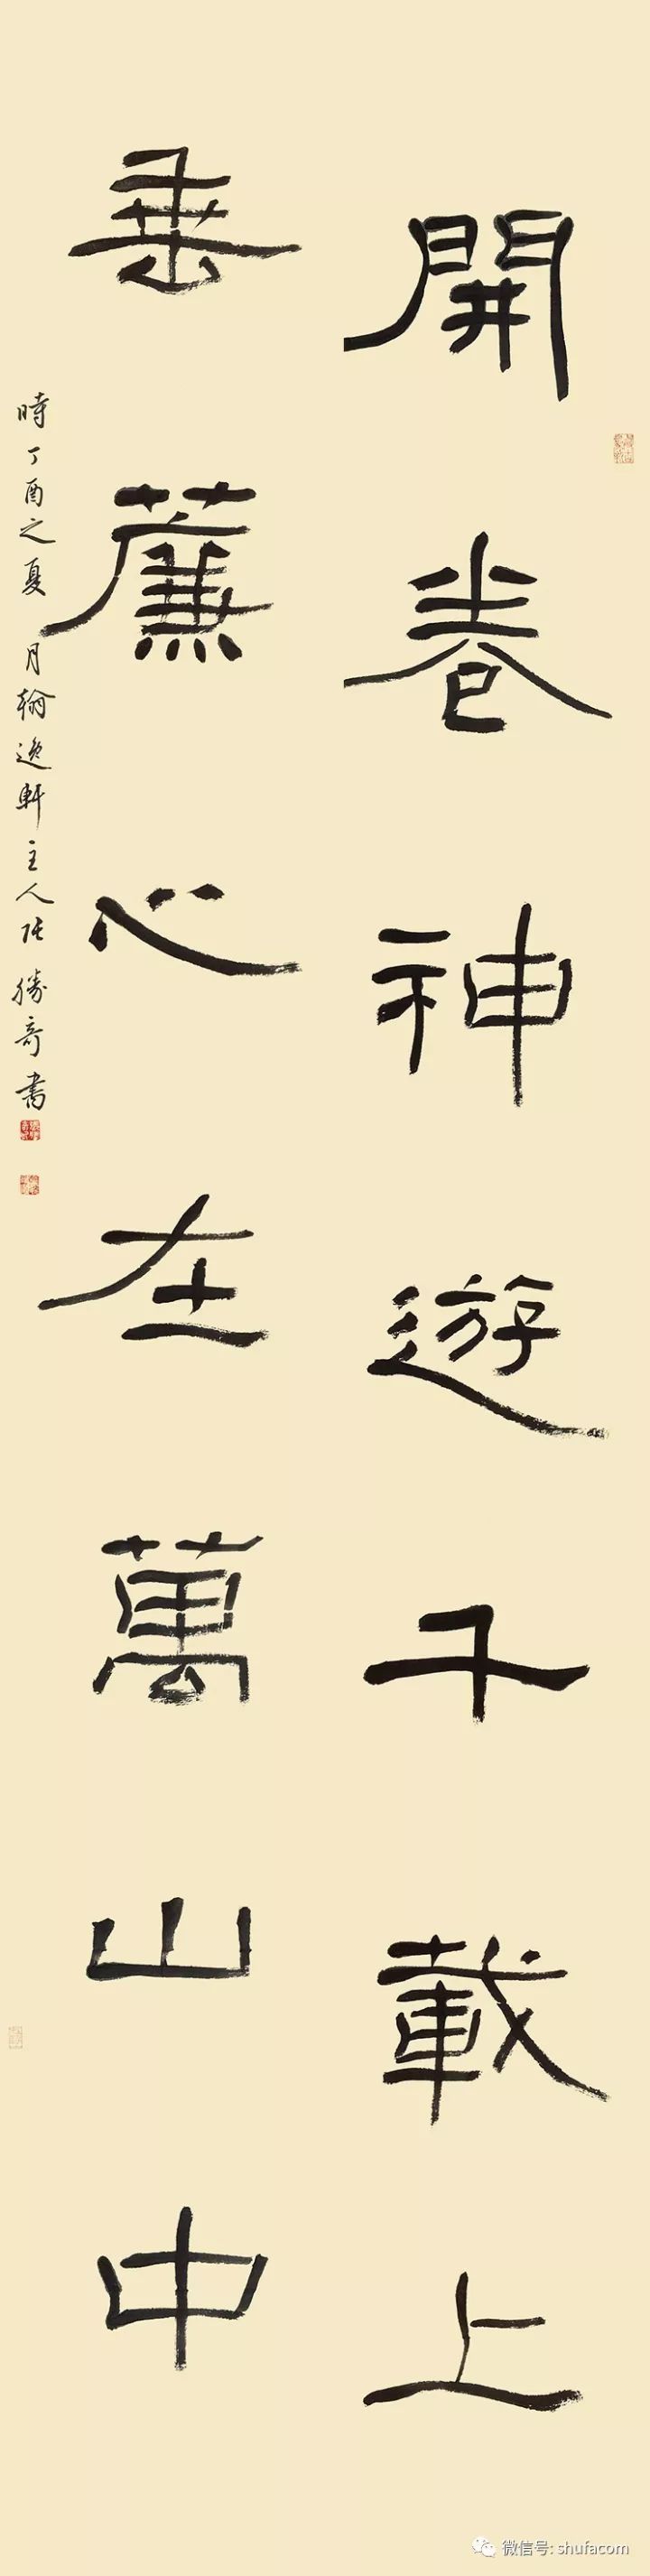 開卷神遊千載上
垂薕心在萬山中
時丁酉之夏月翰逸軒主人張勝奇書
微信号: shufacom